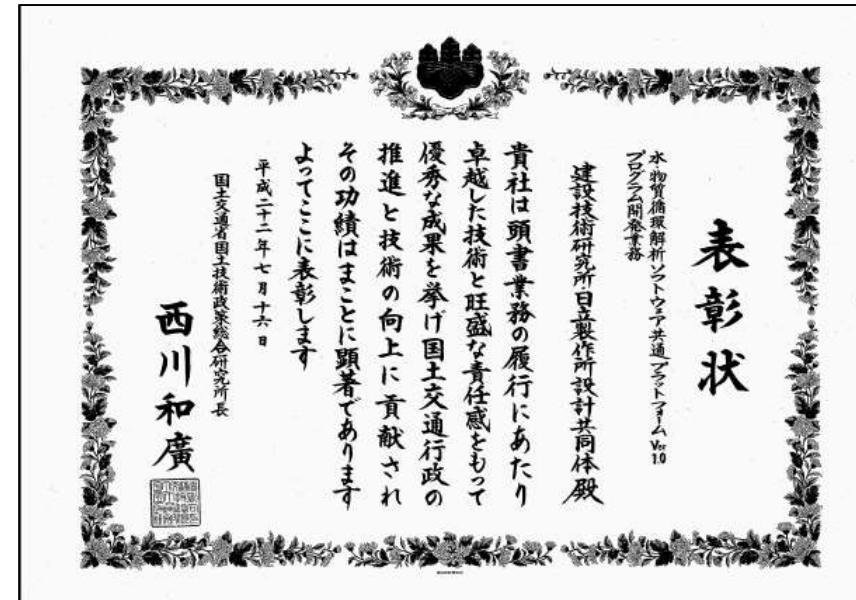 表彰状
水・物質循環解析ソフトウェア共通プラットフォーム Ver1.0
プログラム開発業務
建設技術研究所・日立製作所設計共同体 殿
貴社は頭書業務の履行にあたり
卓越した技術と旺盛な責任感をもって
優秀な成果を挙げ国土交通行政の
推進と技術の向上に貢献され
その功績はまことに顕著であります
よってここに表彰します
平成二十二年七月十六日
国土交通省国土技術政策総合研究所長
西川和廣